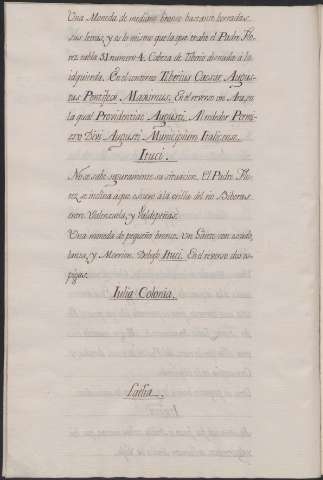 Una Moneda de mediano bronce bastante borradas
sus letras, y es lo mismo que la que trahe el Padre Flo-
rez tabla 31 numero 4. Cabeza de Tiberio desnuda a la
izquierda. En el contorno Tiberius Caesar Augus-
tus Pontifex Maximus. En el reverso un Ara, en
la qual Providentiae Augusti. Al rededor Permi-
ssu Divi Augusti Municipium Italicense.
Ituci.
No se sabe seguramente su situacion. El Padre Flo-
rez se inclina a que estuvo a la orilla del rio
entre Valenzuela, y Valdepeñas.
Una moneda de pequeño bronce. Un Ginete con escudo,
lanza, y Morrion. Debajo Ituci. En el reverso dos es-
pigas.
Iulia Colonia.
Laelia.